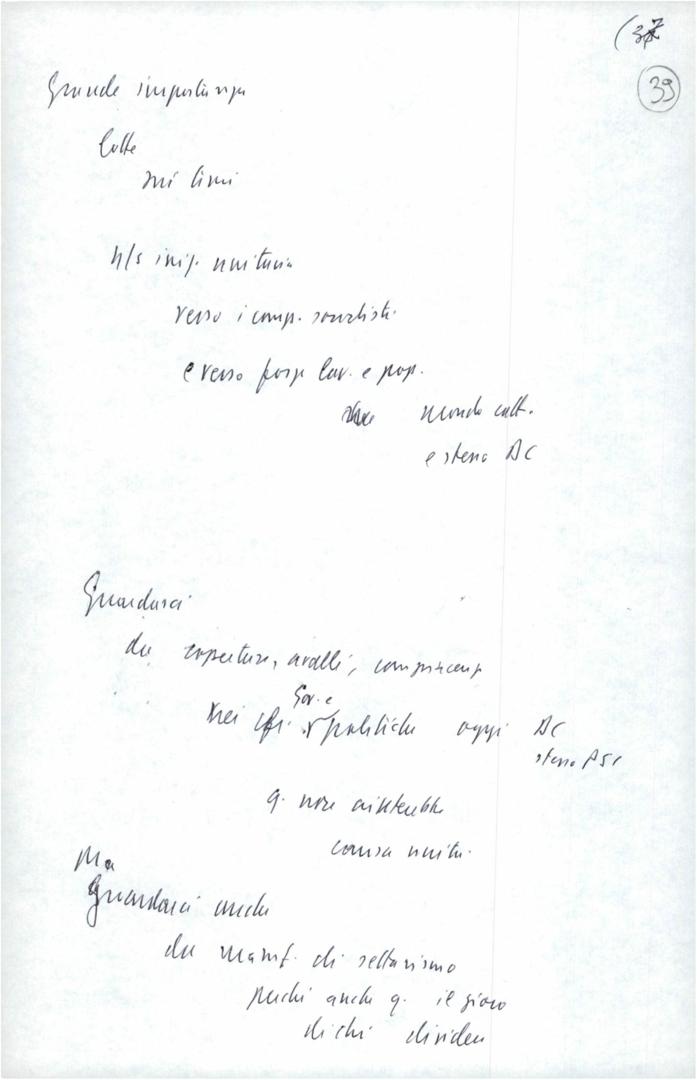 (37
39
Grande importanza
lotte
mi limi
n/s iniz. unitaria
verso i comp. socialisti
e verso forze lav. e pop.
mondo catt.
e stessa DC
Guardarci
da coperture, avalli, compiacenze
nei cfr. Gov. e politiche oggi DC
stesso PSI
q. non aiuterebbe
causa unità.
Ma
guardarci anche
da manif. di settarismo
perché anche q. il gioco
di chi divide